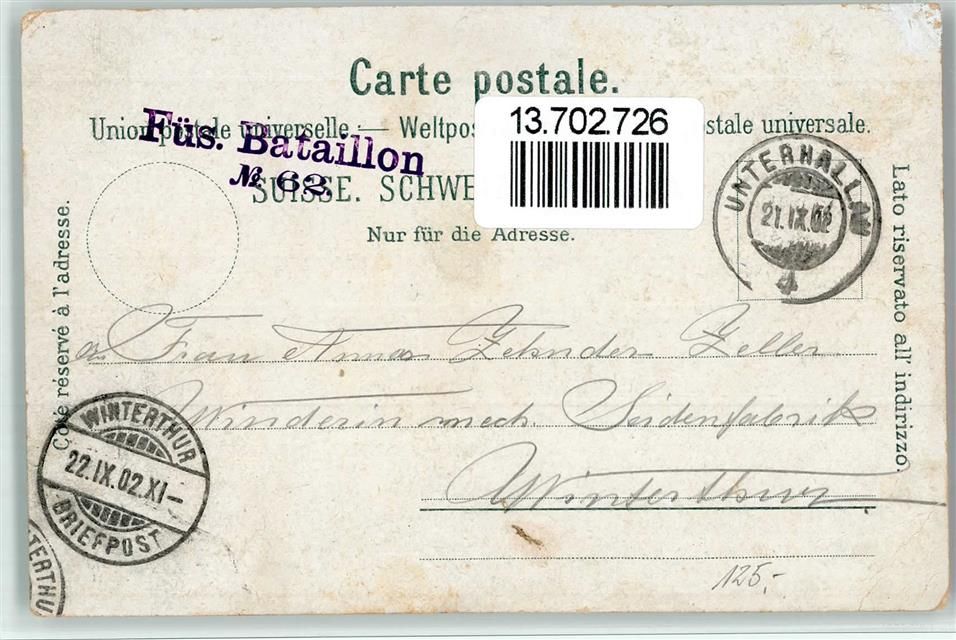 Carte postale.
13.702.726
Union postale universelle. — Weltpos stale universale.
Füs. Bataillon
№ 62.
SUISSE. SCHWE
Nur für die Adresse.
UNTERHALLAU
21.IX.02
Côté réservé à l'adresse.
Lato riservato all' indirizzo.
an Frau Anna Zehnder Zeller
Winderin mech. Seidenfabrik
Winterthur
WINTERTHUR
22.IX.02.XI—
BRIEFPOST
TERTHU
125.-